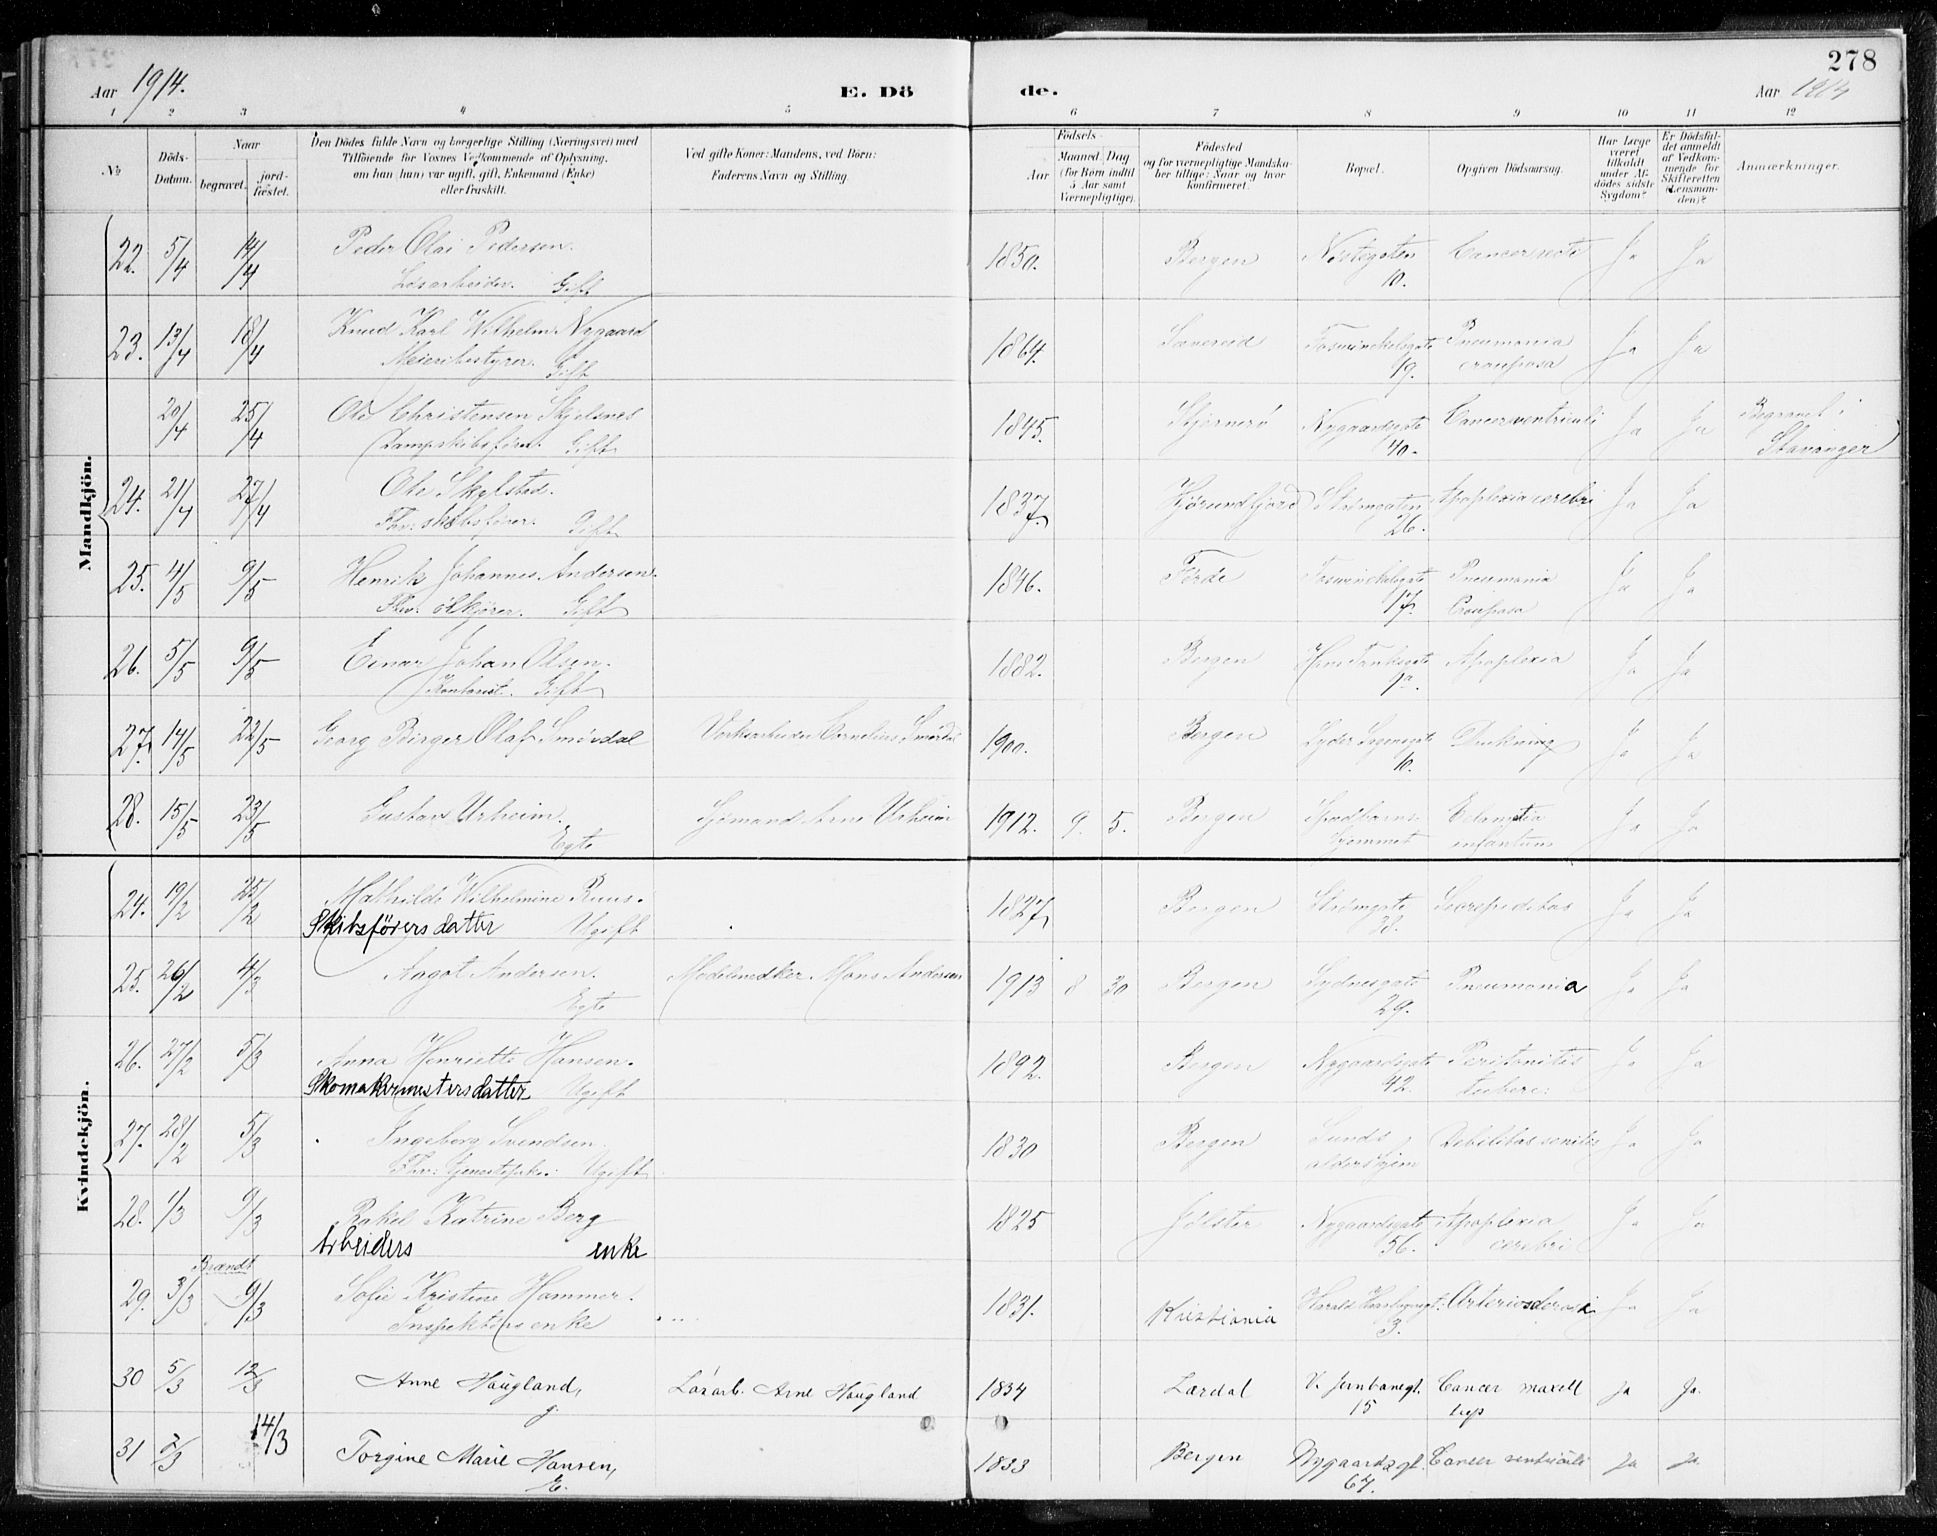 278
Aar 1914.
E. Dö
de.
Aar 1914
1 2 3 4 5 6 7 8 9 10 11 12
No
Döds-Datum.
Naar
begravet.
jord-fæstet.
Den Dödes fulde Navn og borgerlige Stilling (Næringsvei) med
Tilföiende for Voxnes Vedkommende af Oplysning,
om han (hun) var ugift, gift, Enkemand (Enke)
eller fraskilt.
Ved gifte Koner: Mandens, ved Börn:
Faderens Navn og Stilling.
Födsels-
Aar
Maaned Dag
(for Børn indtil
5 Aar samt
Værnepligtige).
Födested
og for værnepligtige Mandska-
ber tillige: Naar og hvor
konfirmeret.
Bopæl.
Opgiven Dödsaarsag.
Har Læge
været
tilkaldt
under Af-
dödes sidste
Sygdom?
Er Dödsfal-
det anmeldt
af Vedkom-
mende for
Skifteretten
(Lensman-
den)?
Anmærkninger.
Mandkjön.
22. 5/4 14/4 Peder Olai Pedersen. 1850. Bergen Nöstegaten Cancer recti Ja Ja
Løsarbeider. Gift 10.
23. 13/4 18/4 Knud Karl Wilhelm Nygaard 1864. Sævereid Foswinckelsgate Pneumonia Ja Ja
Meieribestyrer. Gift 19. crouposa
20/4 25/4 Ole Christensen Skjelsnes 1845. Stjernerö Nygaardsgate Cancer ventriculi Ja Ja Begravet i
Dampskibsförer. Gift 40. Stavanger
24. 21/4 27/4 Ole Skylstad. 1837. Hjörundfjord Strömgaten Apoplexia cerebri Ja Ja
Fhv: skibsförer. Gift 26.
25. 4/5 9/5 Henrik Johannes Andersen. 1846. Förde Foswinckelsgate Pneumonia Ja Ja
Fhv: ölkjörer. Gift 17. Crouposa
26. 5/5 9/5 Einar Johan Olsen. 1882. Bergen Hans Tanksgate Apoplexia Ja Ja
Kontorist. Gift 1a.
27. 14/5 22/5 Georg Birger Olaf Smördal Verksarbeider Cornelius Smördal 1900. Bergen Lyder Sagensgate Drukning Ja Ja
10.
28. 15/5 23/5 Gustav Urheim. Sjömand Arne Urheim 1912. 9. 5. Bergen Spædbarns- Eclampsia Ja Ja
Egte hjemmet infantum
Kvindekjön.
24. 19/2 25/2 Mathilde Wilhelmine Ruus. 1827. Bergen Strömgate Ja Ja
Skibsförers datter Ugift
25. 26/2 4/3 Aagot Andersen. Modelsnedker Mons Andersen 1913 8 30 Bergen Sydnesgate Pneumonia Ja Ja
Egte 29.
26. 27/2 5/3 Anna Henriette Hansen. 1892. Bergen Nygaardsgate Peritonitis Ja Ja
Skomakermesters datter Ugift 42. tuberc:
27. 28/2 5/3 Ingeborg Svendsen. 1830 Bergen Sunds Debilitas senilis Ja Ja
Fhv: tjenestepike. Ugift aldershjem
28. 1/3 9/3 Rakel Katrine Berg 1825 Jölster Nygaardsgate Apoplexia Ja Ja
Arbeiders enke 56. cerebri
Brændt
29. 3/3 9/3 Sofie Kristine Hammer. 1831. Kristiania Harald Haarfagresgt. Arteriosclerosi Ja Ja
Inspektörs enke 3.
30 5/3 12/3 Anne Haugland, Lösarb. Arne Haugland 1834 Lærdal V. Jernbanegt. Cancer maxill Ja Ja.
g. 15 sup
31 7/3 14/3 Torgine Marie Hansen, 1833 Bergen Nygaardsgt. Cancer ventriculi Ja Ja
E. 67.